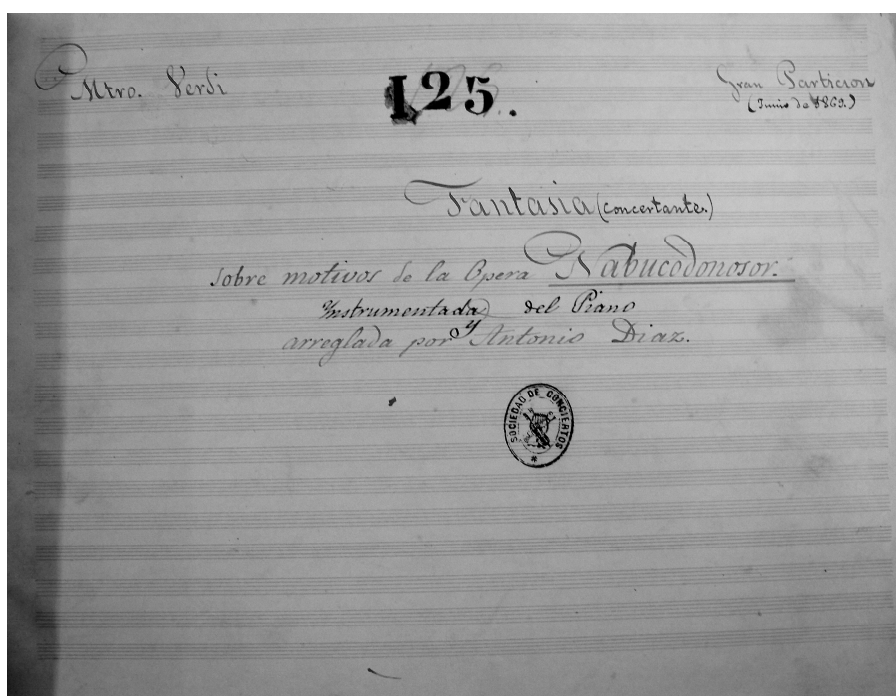 Mtro. Verdi
125.
Gran Particion
(Junio de 1869.)
Fantasia (concertante.)
sobre motivos de la Opera Nabucodonosor.
Instrumentada del Piano
y
arreglada por Antonio Diaz.
SOCIEDAD DE CONCIERTOS